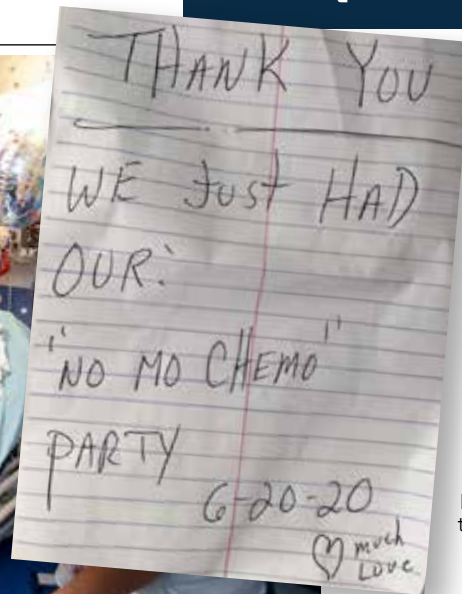 THANK YOU
WE Just HAD
OUR:
"NO MO CHEMO"
PARTY
6-20-20
♡ much
Love